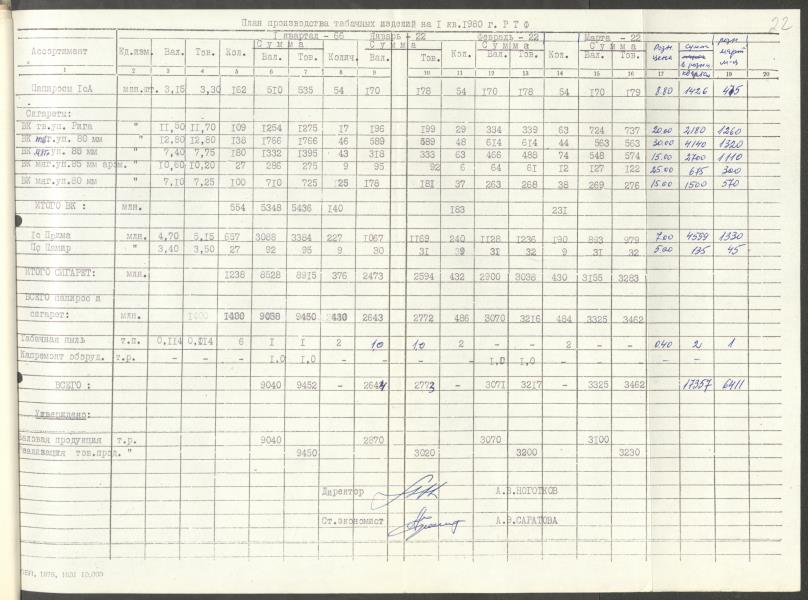 22
План производства табачных изделий на I кв.1980 г. Р Т Ф
I квартал - 66 Январь - 22 Февраль - 22 Марта - 22
Ассортимент Ед.изм. Вал. Тов. Кол. Сумма Вал. Тов. Колич. Сумма Вал. Тов. Кол. Сумма Вал. Тов. Кол. Сумма Вал. Тов. розн цена сумма в розн розн март м-ц
1 2 3 4 5 6 7 8 9 10 11 12 13 14 15 16 17 18 19 20
Папиросы IсА млн.шт. 3,15 3,30 162 510 535 54 170 178 54 170 178 54 170 179 8.80 1426 475
Сигареты:
ВК тв.уп. Рига " 11,50 11,70 109 1254 1275 17 196 199 29 334 339 63 724 737 20.00 2180 1260
ВК уп. 80 мм " 12,80 12,80 138 1766 1766 46 589 589 48 614 614 44 563 563 30.00 4140 1320
ВК уп. 85 мм " 7,40 7,75 180 1332 1395 43 318 333 63 466 488 74 548 574 15.00 2700 1110
ВК мяг.уп.85 мм аром. " 10,60 10,20 27 286 275 9 95 92 6 64 61 12 127 122 25.00 675 300
ВК мяг.уп.80 мм " 7,10 7,25 100 710 725 25 178 181 37 263 268 38 269 276 15.00 1500 570
ИТОГО ВК : млн. 554 5348 5436 140 183 231
Iс Прима млн. 4,70 5,15 657 3088 3384 227 1067 1169 240 1128 1236 190 893 979 7.00 4599 1330
Памир " 3,40 3,50 27 92 95 9 30 31 9 31 32 9 31 32 5.00 135 45
ИТОГО СИГАРЕТ: млн. 1238 8528 8915 376 2473 2594 432 2900 3038 430 3155 3283
ВСЕГО папирос и
сигарет: млн. 1400 1400 9038 9450 430 2643 2772 486 3070 3216 484 3325 3462
Табачная пыль т.п. 0,114 0,114 6 I I 2 1,0 1,0 2 - - 2 - - 0.40 2 1
Капремонт оборуд. т.р. - - - 1,0 1,0 - - - - 1,0 1,0 - - -
ВСЕГО : 9040 9452 - 2644 2773 - 3071 3217 - 3325 3462 17357 6411
Утверждено:
Валовая продукция т.р. 9040 2870 3070 3100
Реализация тов.прод. " 9450 3020 3200 3230
Директор А.В.НОГОТКОВ
Ст.экономист А.В.САРАТОВА